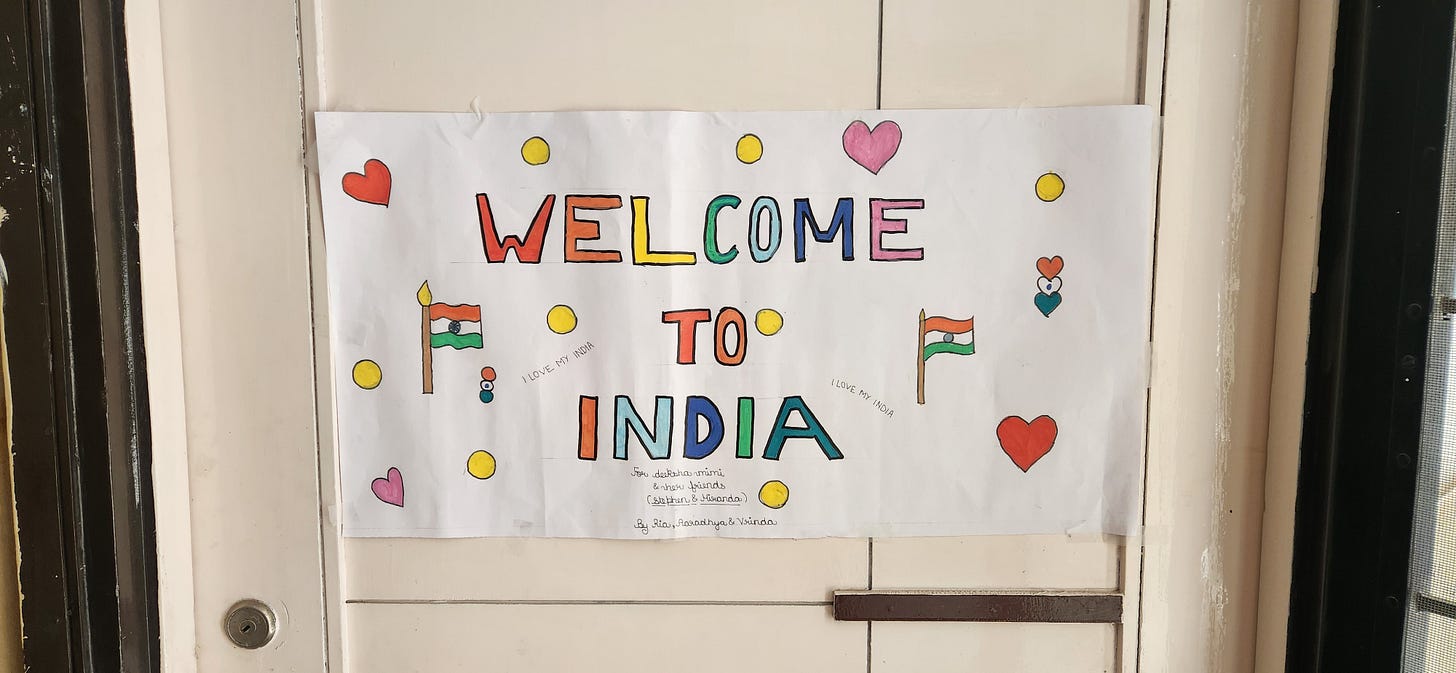 WELCOME
TO
INDIA
I LOVE MY INDIA
I LOVE MY INDIA
For deeksha mimi
& her friends
(Stephen & Miranda)
By Ria, Aaradhya & Vrinda